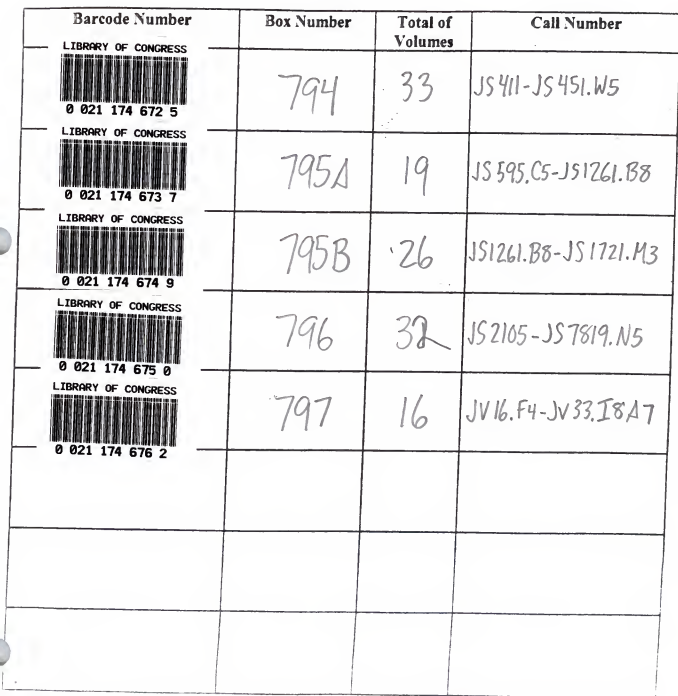 Barcode Number Box Number Total of Volumes Call Number
LIBRARY OF CONGRESS
0 021 174 672 5 794 33 JS 411-JS 451.W5
LIBRARY OF CONGRESS
0 021 174 673 7 795A 19 JS 595.C5-JS1261.B8
LIBRARY OF CONGRESS
0 021 174 674 9 795B 26 JS1261.B8-JS 1721.M3
LIBRARY OF CONGRESS
0 021 174 675 0 796 32 JS 2105-JS 7819.N5
LIBRARY OF CONGRESS
0 021 174 676 2 797 16 JV 16.F4-JV 33.I8A7